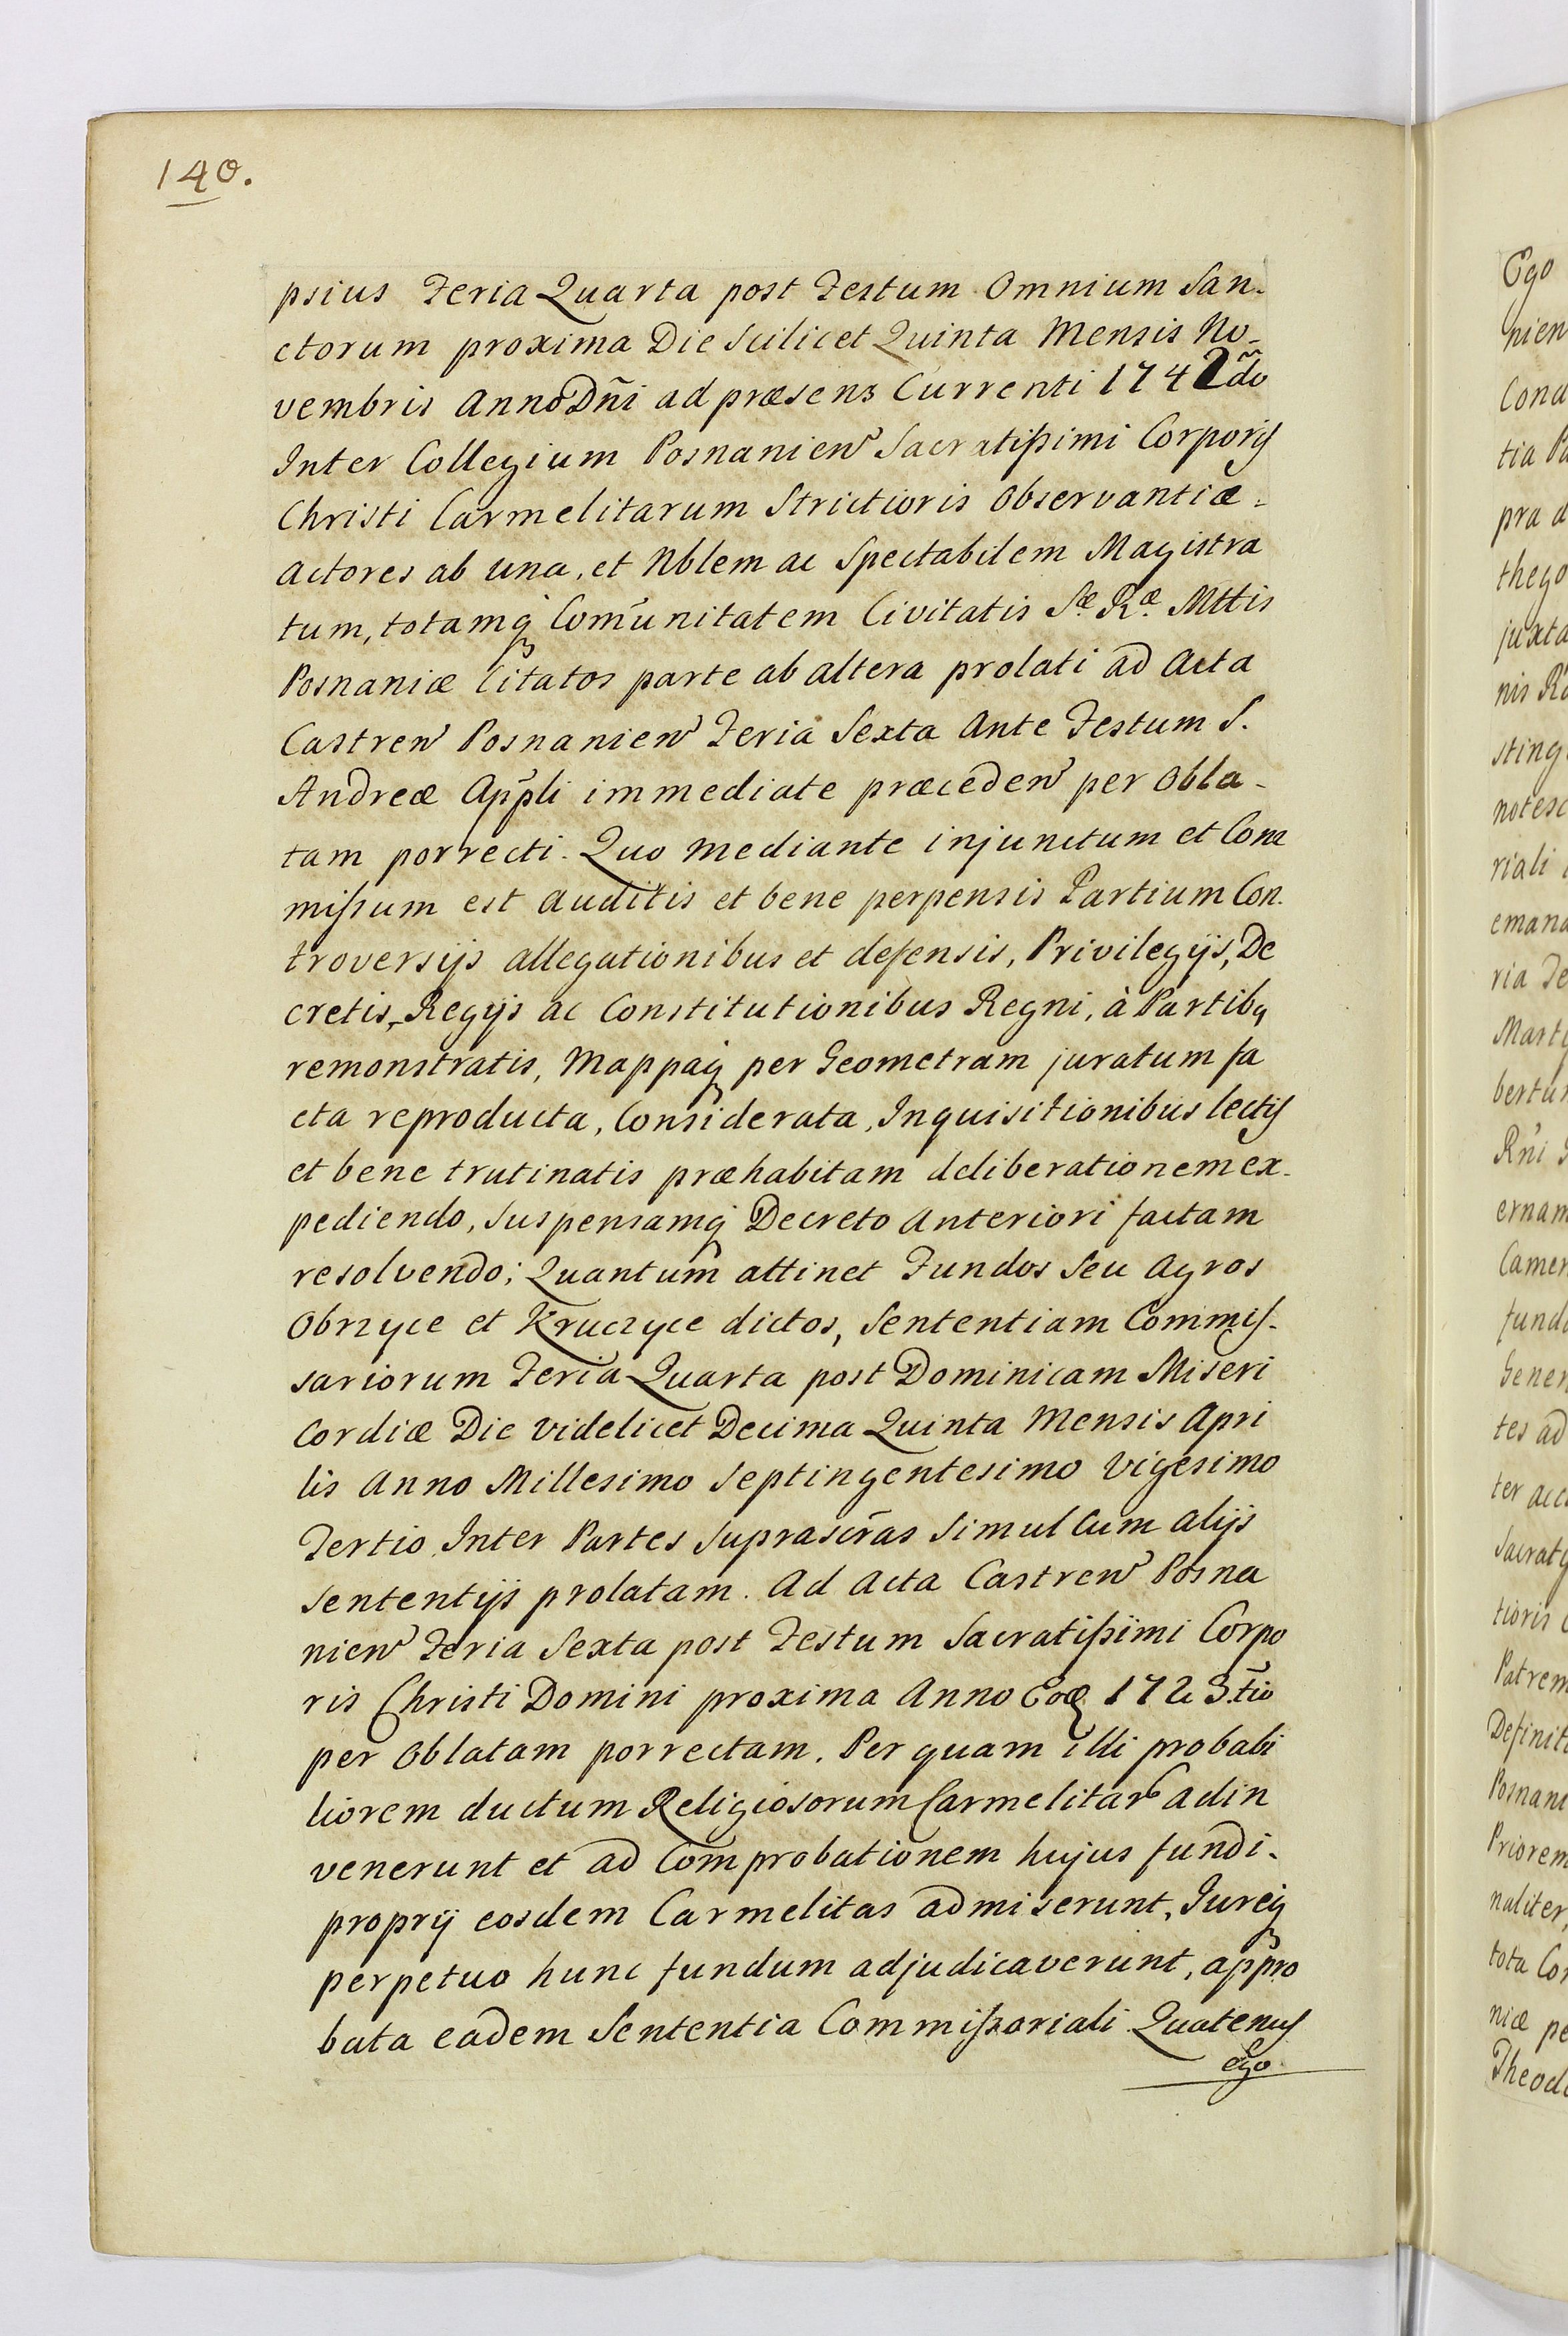 140.
psius Feria Quarta post Festum Omnium San-
ctorum proxima Die Scilicet Quinta Mensis No-
vembris Anno Dñi ad præsens Currenti 1742do
Inter Collegium Posnanien Sacratissimi Corporis
Christi Carmelitarum Strictioris Observantiæ-
Actores ab una, et Nblem ac Spectabilem Magistra
tum, totamq Com̃unitatem Civitatis Sæ Ræ Mttis
Posnaniæ Citatos parte ab altera prolati ad Acta
Castren Posnanien Feria Sexta Ante Festum S.
Andreæ App̃li immediate præceden per Obla-
tam porrecti. Quo mediante injunctum et Com
missum est auditis et bene perpensis Partium Con-
troversijs allegationibus et defensis, Privilegijs, De
cretis, Regijs ac Constitutionibus Regni, à Partibq
remonstratis, Mappaq per Geometram juratum fa
cta reproducta, Considerata, Inquisitionibus lectis
et bene trutinatis præhabitam deliberationem ex-
pediendo, Suspensamq Decreto Anteriori factam
resolvendo; Quantum attinet Fundos Seu Agros
Obrzyce et Kruczyce dictos, Sententiam Commis-
sariorum Feria Quarta post Dominicam Miseri
Cordiæ Die videlicet Decima Quinta Mensis Apri
lis Anno Millesimo Septingentesimo Vigesimo
Tertio Inter Partes Suprascr̃as Simul Cum alijs
Sententijs prolatam. Ad Acta Castren Posna
nien Feria Sexta post Festum Sacratissimi Corpo
ris Christi Domini proxima Anno Eoq 1723.tio
per Oblatam porrectam. Per quam illi probabi
liorem ductum Religiosorum Carmelitar adin
venerunt et ad Comprobationem hujus fundi-
proprij eosdem Carmelitas admiserunt, Jureq
perpetuo hunc fundum adjudicaverunt, appro
bata eadem Sententia Commissoriali Quatenus
Ego
Ego
nien
Cond
tia Pa
pra d
thego
juxta
nis Ra
sting
notesc
riali
emana
ria Fe
Marti
bertu
Rñi
ernam
Camer
fund
Gener
tes ad
ter acc
Sacrat
tioris
Patrem
Definit
Posnani
Priorem
naliter,
tota Co
niæ pe
Theod